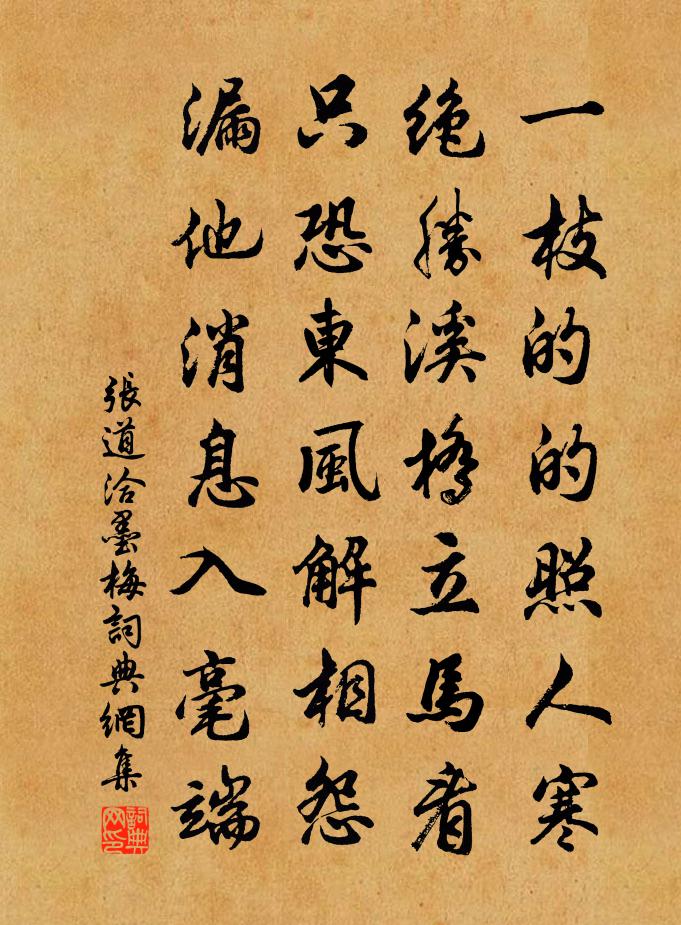 一枝的的照人寒
绝勝溪橋立馬看
只恐東風解相怨
漏他消息入毫端
張道洽墨梅詞典網集
詞典网印